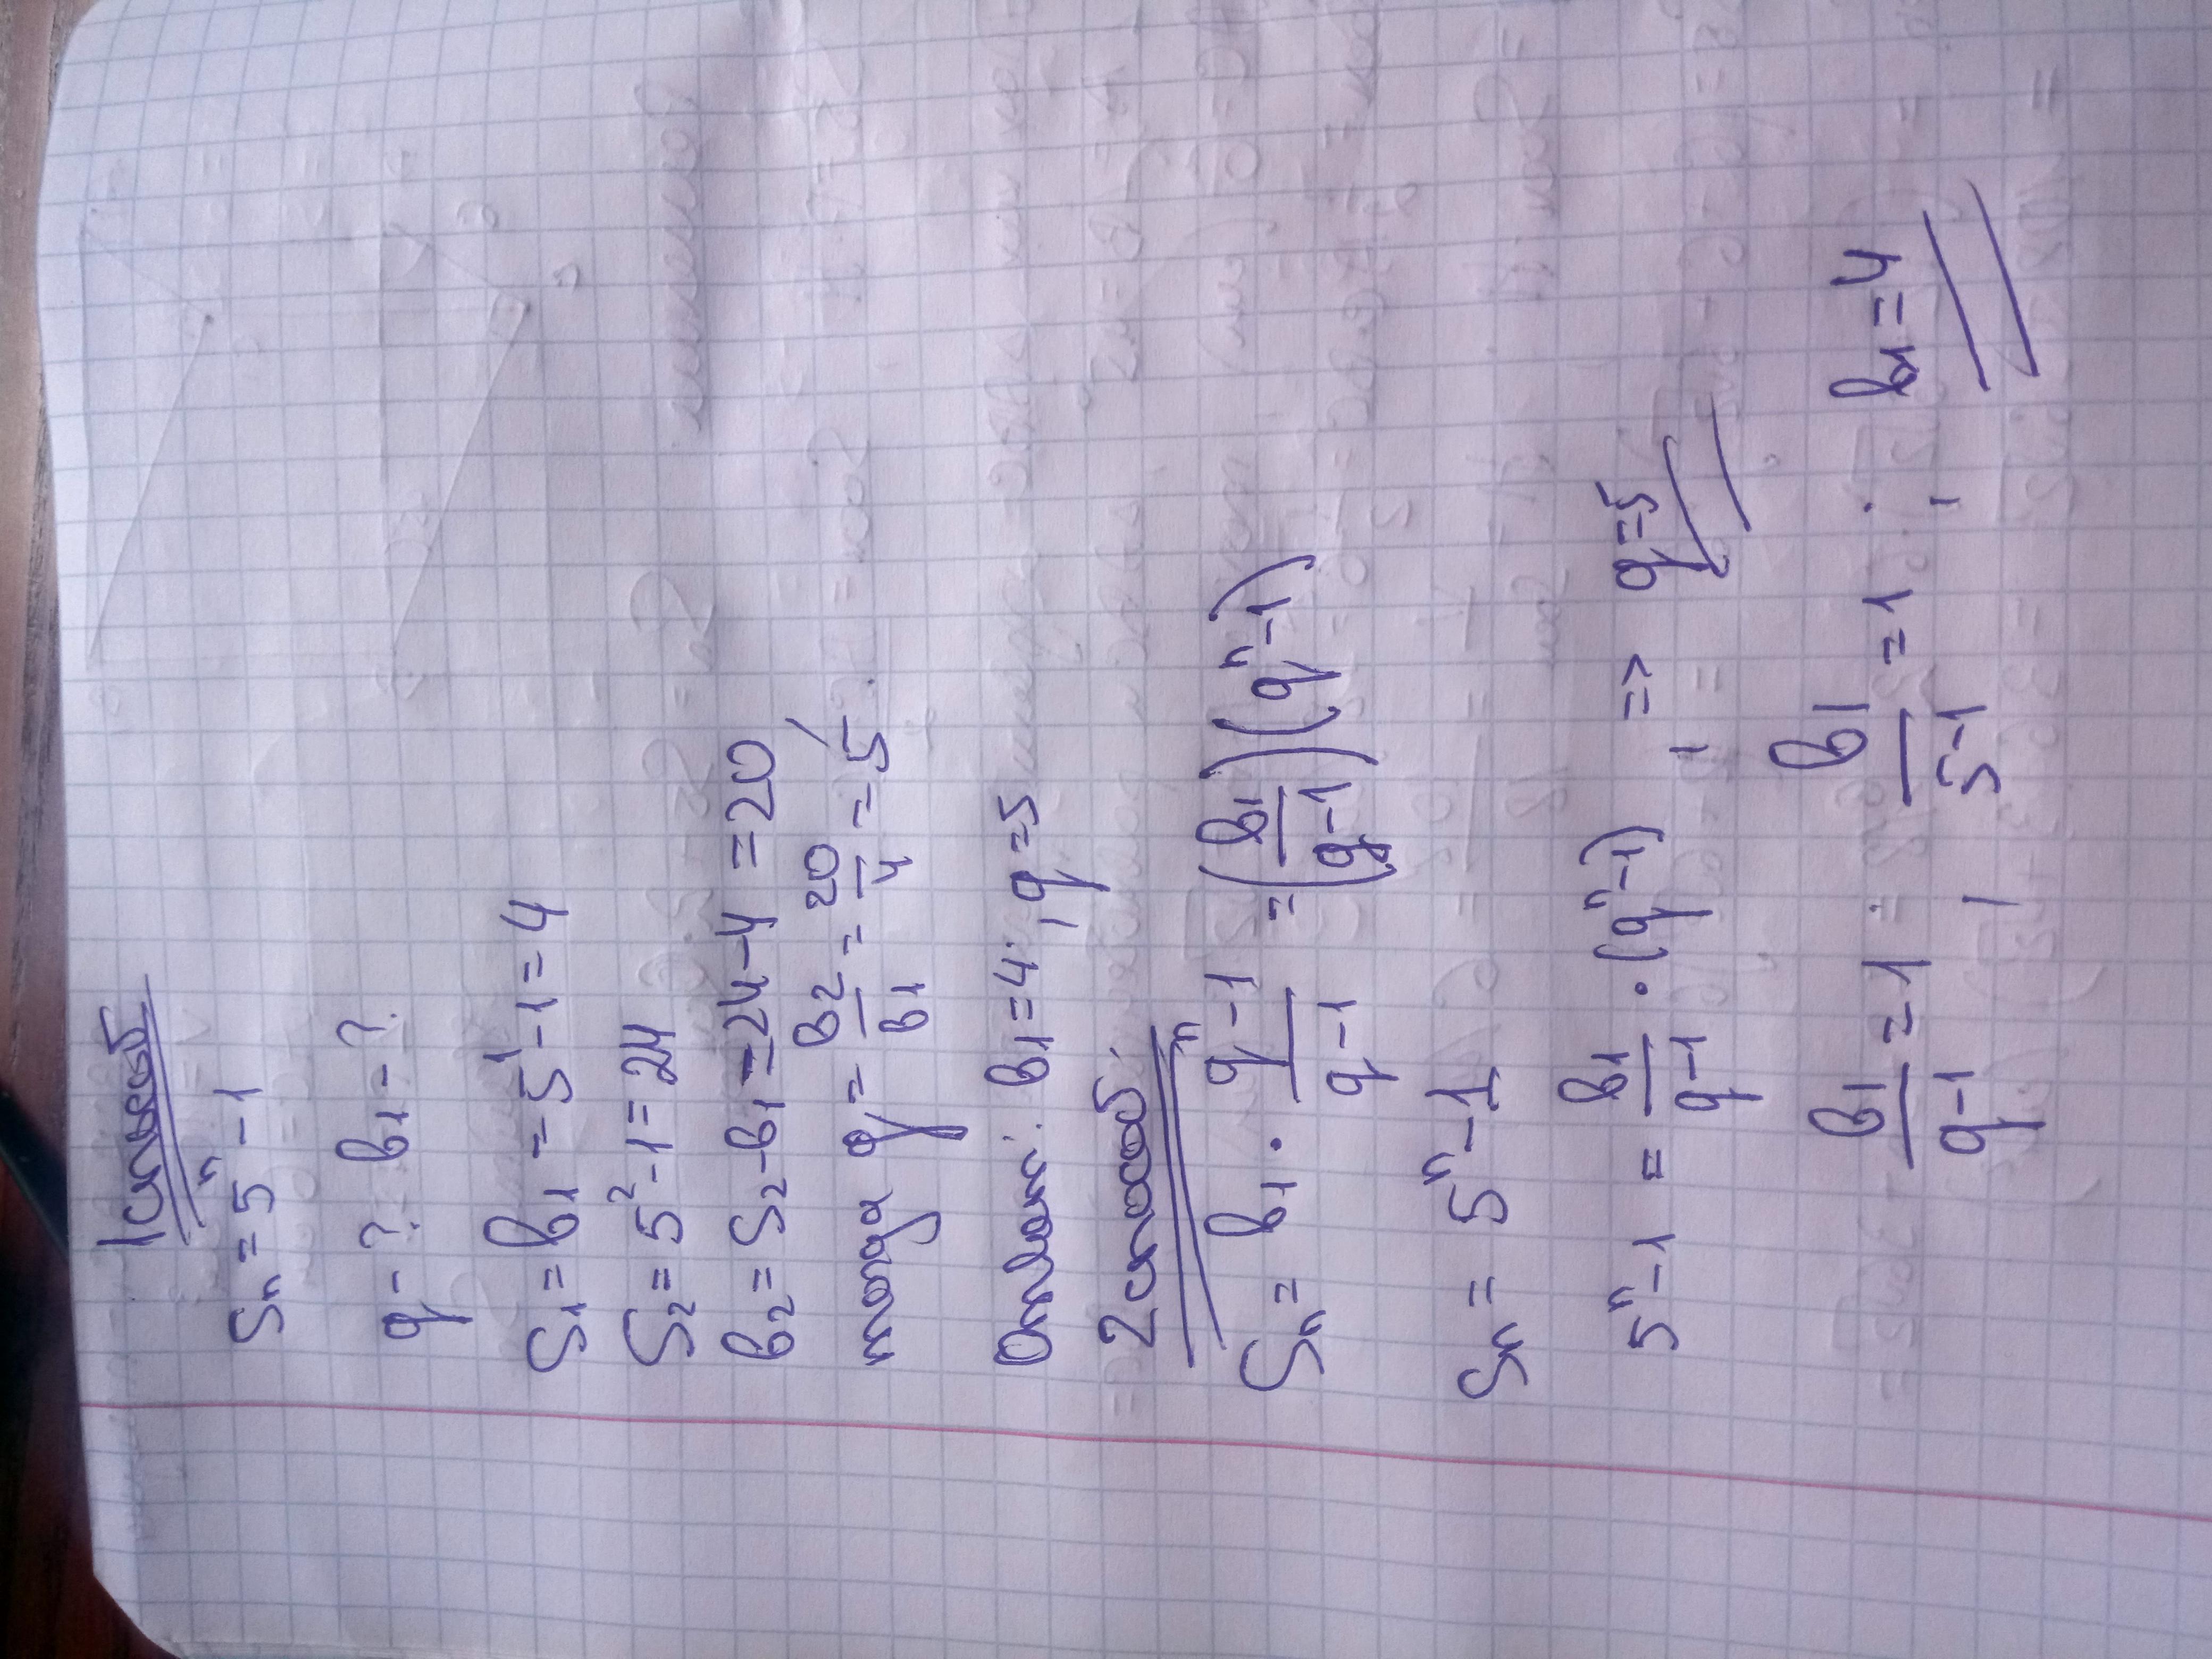 1 способ
Sn = 5^n - 1
q - ? b1 - ?
S1 = b1 = 5^1 - 1 = 4
S2 = 5^2 - 1 = 24
b2 = S2 - b1 = 24 - 4 = 20
тогда q = b2/b1 = 20/4 = 5
Ответ: b1 = 4; q = 5
2 способ
Sn = b1 · (q^n - 1)/(q - 1) = (b1/(q - 1))(q^n - 1)
Sn = 5^n - 1
5^n - 1 = b1/(q - 1) · (q^n - 1), => q = 5
b1/(q - 1) = 1; b1/(5 - 1) = 1; b1 = 4